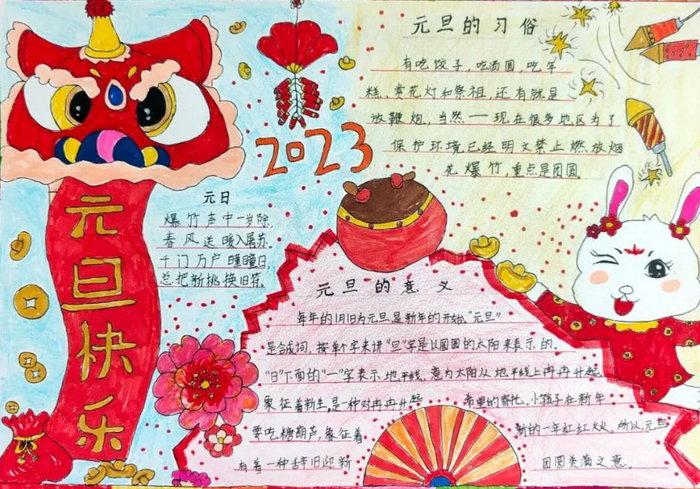 元旦快乐
2023
元旦的习俗
有吃饺子，吃汤圆，吃年
糕，赏花灯和祭祖，还有就是
放鞭炮，当然——现在很多地区为了
保护环境已经明文禁止燃放烟
花爆竹，重点是团圆
元日
爆竹声中一岁除
春风送暖入屠苏
千门万户曈曈日，
总把新桃换旧符
元旦的意义
每年的1月1日为元旦是新年的开始"元旦"
是合成词，按单个字来讲"旦"字是以圆圆的太阳来表示的，
"日"下面的"一"字表示地平线，意为太阳从地平线上冉冉升起
象征着新生，是一种对冉冉升起
希望的寄托，小孩子在新年
要吃糖葫芦，象征着
新的一年红红火火，所以，元旦
有着一种辞旧迎新
团圆美满之意.